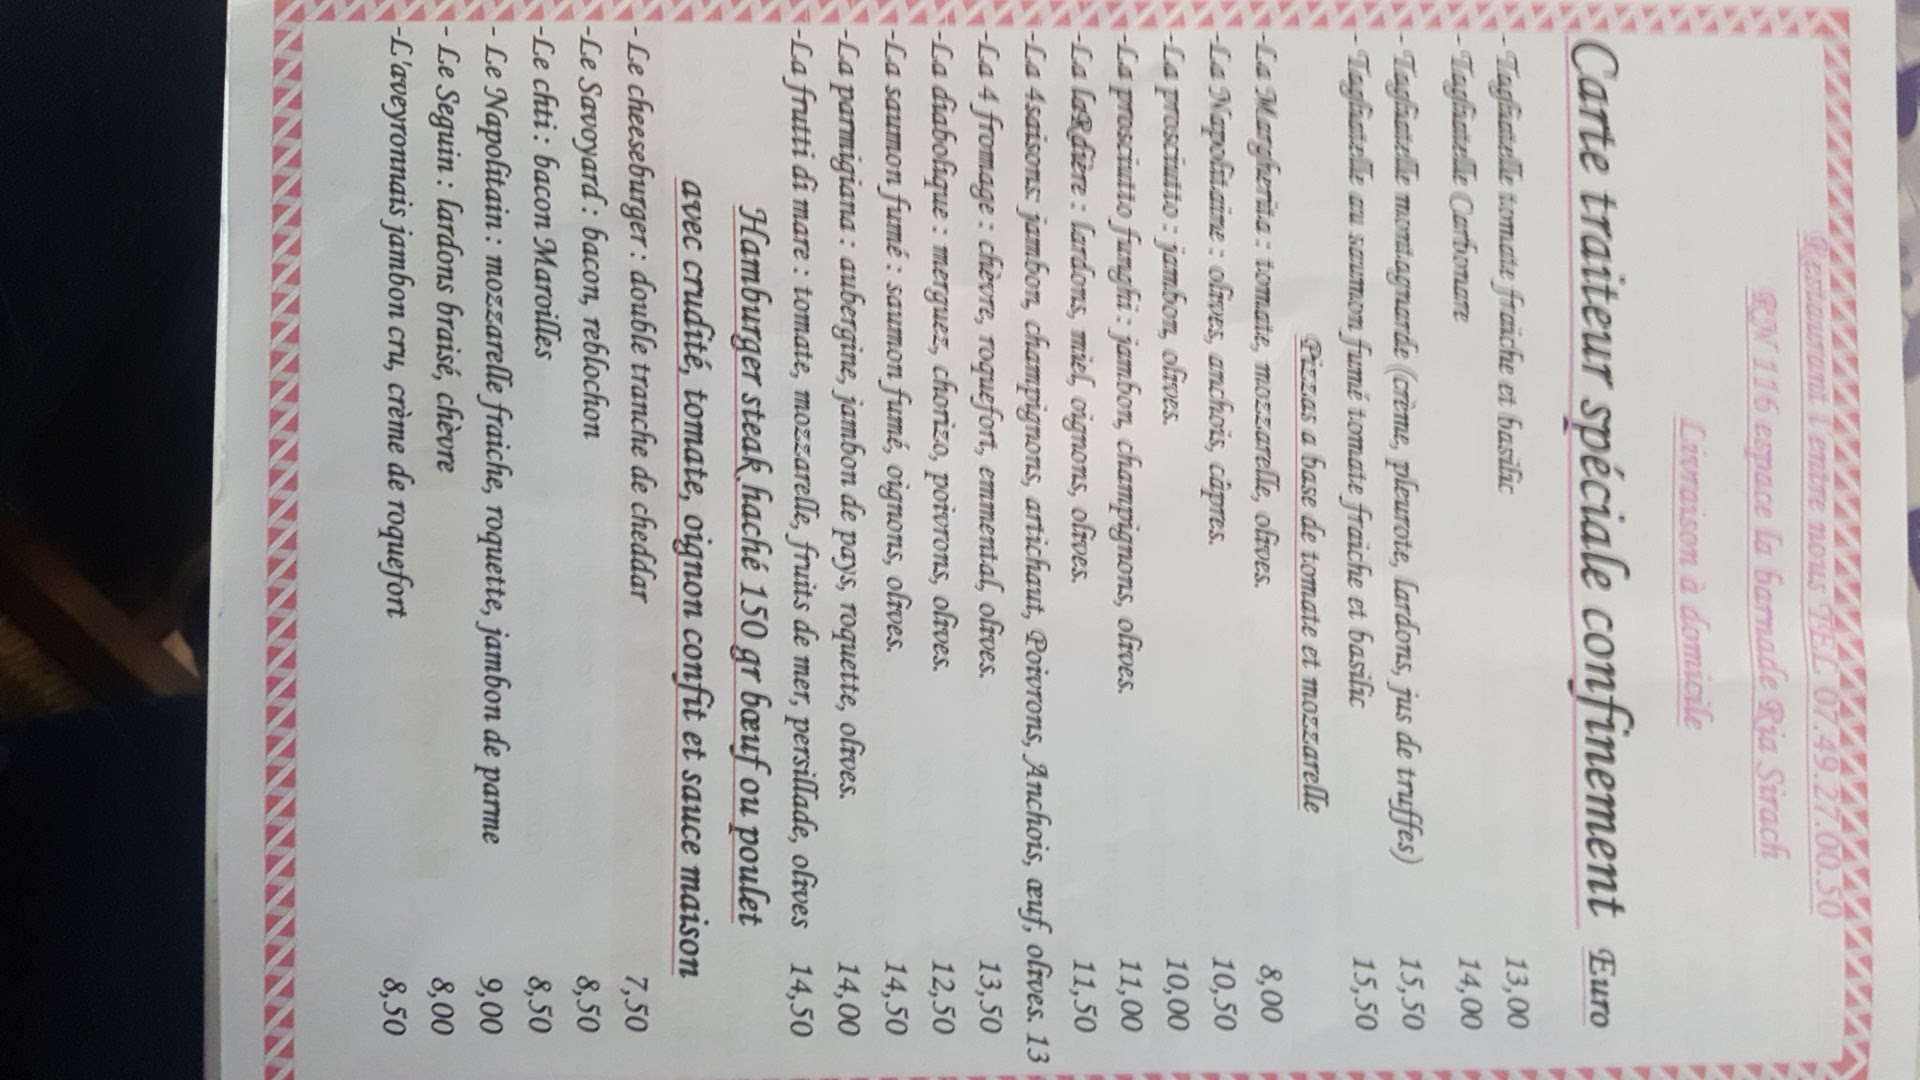 Restaurant l'entre nous TEL 07.49.27.00.50
RN 116 espace la barnade Ria Sirach
Livraison à domicile
Carte traiteur spéciale confinement Euro
- Tagliatelle tomate fraiche et basilic 13,00
- Tagliatelle Carbonare 14,00
- Tagliatelle montagnarde (crème, pleurote, lardons, jus de truffes) 15,50
- Tagliatelle au saumon fumé tomate fraiche et basilic 15,50
Pizzas a base de tomate et mozzarelle
-La Margherita : tomate, mozzarelle, olives. 8,00
-La Napolitaine : olives, anchois, câpres. 10,50
-La prosciutto : jambon, olives. 10,00
-La prosciutto funghi : jambon, champignons, olives. 11,00
-La laRdière : lardons, miel, oignons, olives. 11,50
-La 4 saisons: jambon, champignons, artichaut, Poivrons, Anchois, œuf, olives. 13
-La 4 fromage : chèvre, roquefort, emmental, olives. 13,50
-La diabolique : merguez, chorizo, poivrons, olives. 12,50
-La saumon fumé : saumon fumé, oignons, olives. 14,50
-La parmigiana : aubergine, jambon de pays, roquette, olives. 14,00
-La frutti di mare : tomate, mozzarelle, fruits de mer, persillade, olives 14,50
Hamburger steak haché 150 gr bœuf ou poulet
avec crudité, tomate, oignon confit et sauce maison
- Le cheeseburger : double tranche de cheddar 7,50
-Le Savoyard : bacon, reblochon 8,50
-Le chti : bacon Maroilles 8,50
- Le Napolitain : mozzarelle fraiche, roquette, jambon de parme 9,00
- Le Seguin : lardons braisé, chèvre 8,00
-L'aveyronnais jambon cru, crème de roquefort 8,50